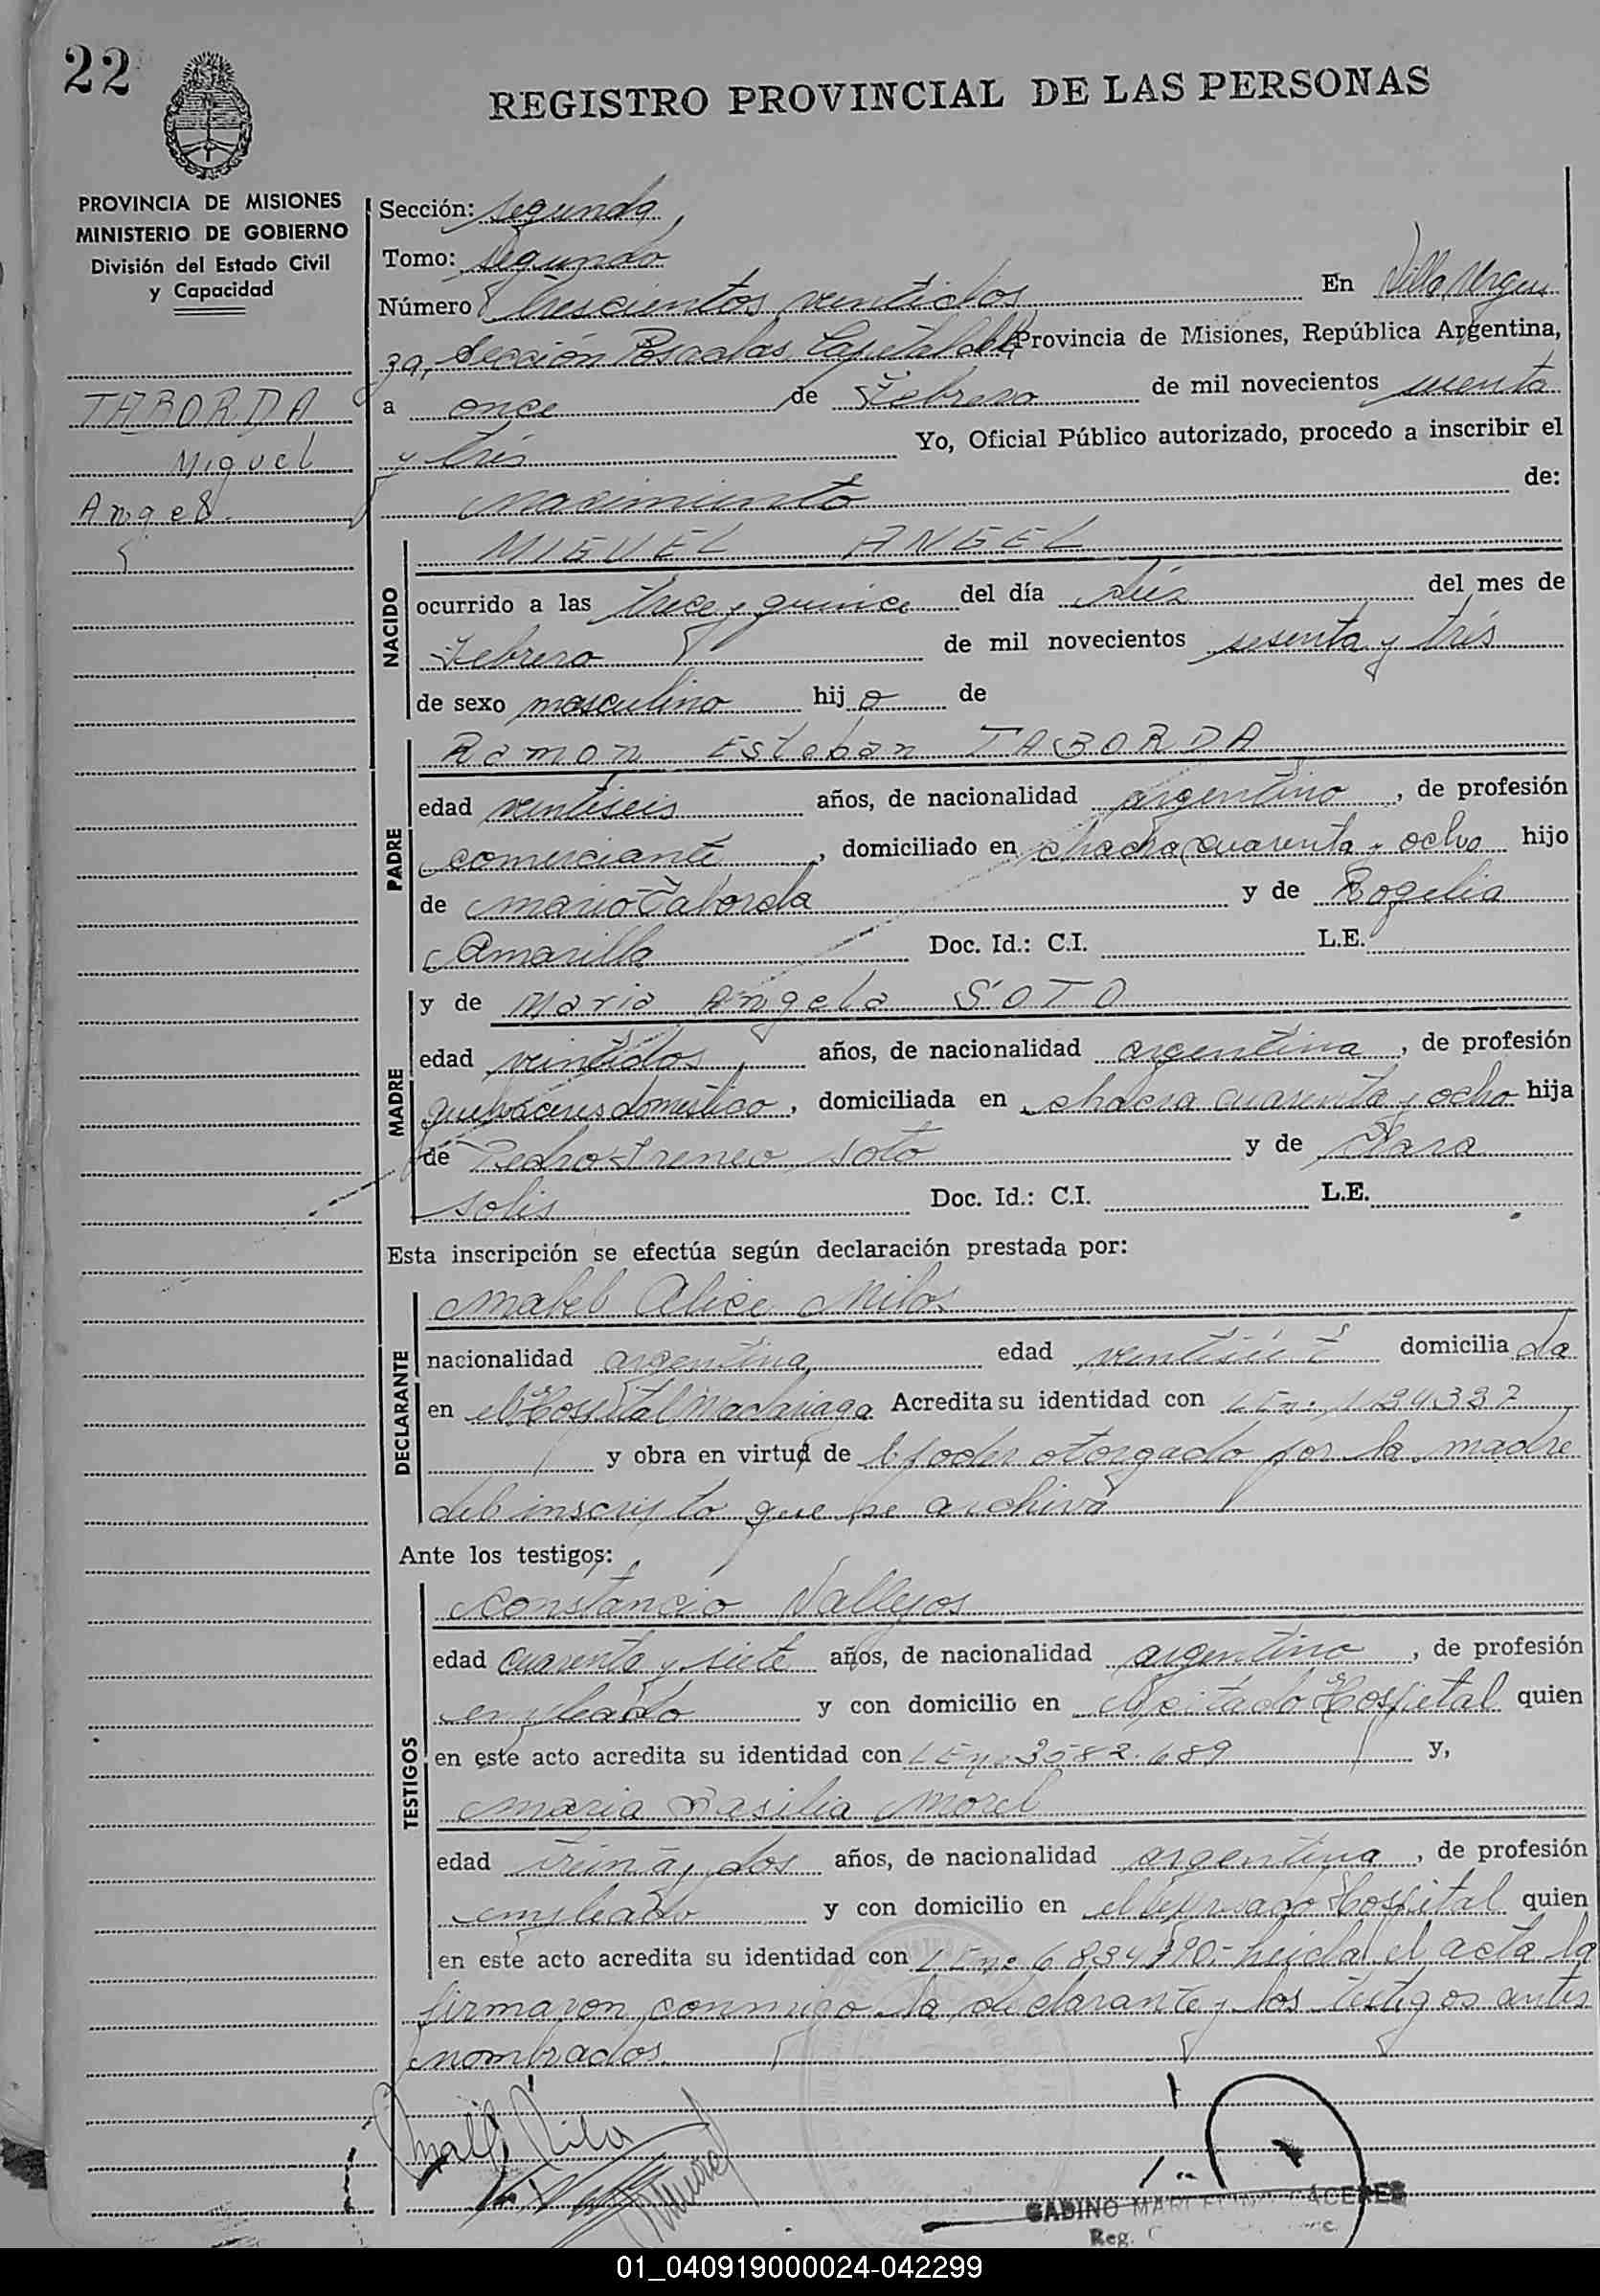 22
REGISTRO PROVINCIAL DE LAS PERSONAS
PROVINCIA DE MISIONES
MINISTERIO DE GOBIERNO
División del Estado Civil
y Capacidad
TABORDA
Miguel
Angel.
Sección: segunda
Tomo: segundo
Número trescientos veintidos En Villa Urqui
za, Sección Posadas Capital de la Provincia de Misiones, República Argentina,
a once de Febrero de mil novecientos sesenta
y trés Yo, Oficial Público autorizado, procedo a inscribir el
nacimiento de:
NACIDO
MIGUEL ANGEL
ocurrido a las trece y quince del día diéz del mes de
Febrero de mil novecientos sesenta y trés
de sexo masculino hijo de
PADRE
Ramon Esteban TABORDA
edad ventiseis años, de nacionalidad argentino, de profesión
comerciante, domiciliado en chacra cuarenta y ocho hijo
de Mario Taborda y de Rogelia
Amarilla Doc. Id.: C.I. L.E.
MADRE
y de Maria Angela SOTO
edad veintidos años, de nacionalidad argentina, de profesión
quehaceres doméstico, domiciliada en chacra cuarenta y ocho hija
de Pedro Ireneo Soto y de Clara
Solis Doc. Id.: C.I. L.E.
Esta inscripción se efectúa según declaración prestada por:
DECLARANTE
Mabel Alice Milos
nacionalidad argentina edad ventisiete domiciliada
en el Hospital Madariaga Acredita su identidad con
y obra en virtud de el poder otorgado por la madre
del inscripto que se archiva
Ante los testigos:
TESTIGOS
Constancio Vallejos
edad cuarenta y siete años, de nacionalidad argentino, de profesión
empleado y con domicilio en el citado Hospital quien
en este acto acredita su identidad con LE nº 3582.689 y,
Maria Basilia Morel
edad treinta y dos años, de nacionalidad argentina, de profesión
empleada y con domicilio en el expresado Hospital quien
en este acto acredita su identidad con LE nº 6834790.- Leida el acta la
firmaron conmigo la declarante y los testigos antes
nombrados.
GABINO CACERES
Reg.
01_040919000024-042299